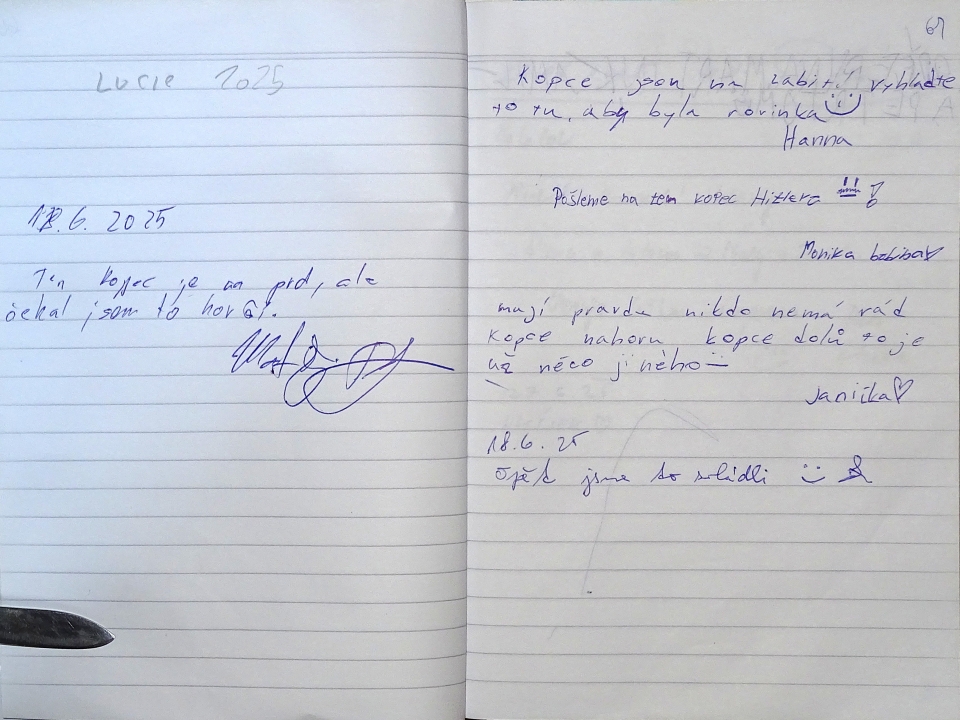 Lucie 2025
18.6. 2025
Ten kopec je na prd, ale
čekal jsem to horší.
61
Kopce jsou na zabití vyhlaďte
to tu, aby byla rovinka
Hanna
Pošleme na ten kopec Hitlera !
Monika
mají pravdu nikdo nemá rád
kopce nahoru kopce dolů to je
už něco jiného
Janička
18.6. 25
opět jsme to zvládli